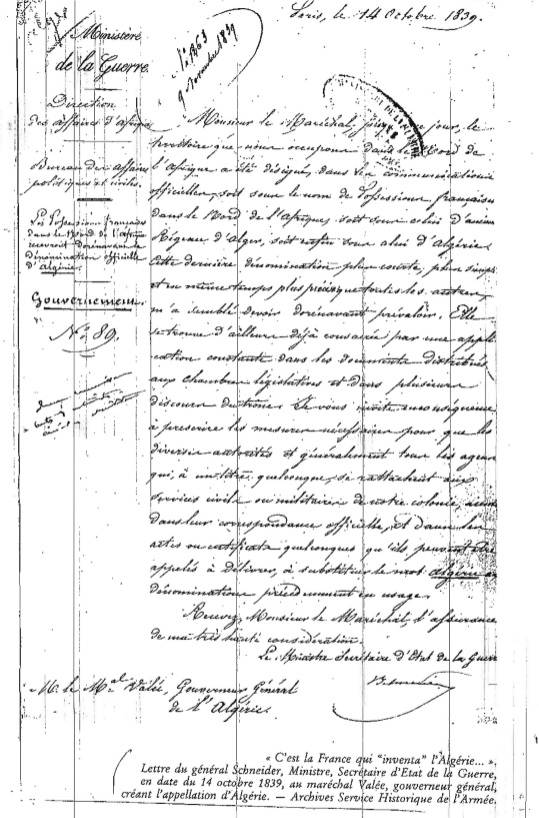 Paris, le 14 Octobre 1839.
Ministère
de la Guerre.
No. 1363
9 Novembre 1839
Direction
des affaires d'afrique
Bureau des affaires
politiques et civiles.
Les Possessions françaises
dans le Nord de l'Afrique
recevront dorénavant la
dénomination officielle
d'Algérie.
Gouvernement.
No. 89.
Monsieur le Maréchal, jusqu'à ce jour, le
territoire que nous occupons dans le Nord de
l'Afrique a été désigné, dans les communications
officielles, soit sous le nom de Possessions françaises
dans le Nord de l'Afrique, soit sous celui d'ancienne
Régence d'Alger, soit enfin sous celui d'Algérie.
Cette dernière dénomination plus courte, plus simple
et en même temps plus précise que toutes les autres,
m'a semblé devoir dorénavant prévaloir. Elle
se trouve d'ailleurs déjà consacrée par une appli-
cation constante dans les documents distribués
aux chambres législatives et dans plusieurs
discours du trône. Je vous invite en conséquence
à prescrire les mesures nécessaires pour que les
diverses autorités et généralement tous les agens
qui, à un titre quelconque, se rattachent aux
services civils ou militaires de notre colonie, aient
dans leur correspondance officielle, et dans les
actes ou certificats quelconques qu'ils peuvent être
appelés à délivrer, à substituer le mot algérie aux
dénominations précédemment en usage.
Recevez, Monsieur le Maréchal, l'assurance
de ma très haute considération.
Le Ministre Secrétaire d'Etat de la Guerre
M. le Mal Valée, Gouverneur Général
de l'Algérie.
« C'est la France qui "inventa" l'Algérie... ».
Lettre du général Schneider, Ministre, Secrétaire d'Etat de la Guerre,
en date du 14 octobre 1839, au maréchal Valée, gouverneur général,
créant l'appellation d'Algérie. — Archives Service Historique de l'Armée.